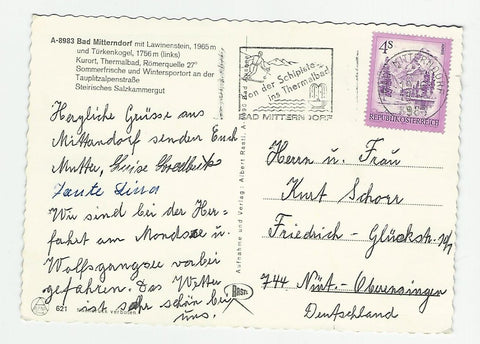 A-8983 Bad Mitterndorf mit Lawinenstein, 1965 m
und Türkenkogel, 1756 m (links)
Kurort, Thermalbad, Römerquelle 27°
Sommerfrische und Wintersportort an der
Tauplitzalpenstraße
Steirisches Salzkammergut
Herzliche Grüsse aus
Mittendorf senden Euch
Mutter, Luise
Tante Lina
Wir sind bei der Her=
fahrt am Mondsee u.
Wolfgangsee vorbei
gefahren. Das Wetter
ist sehr schön bei
uns.
621
verboten
Aufnahme und Verlag: Albert Rastl, A-8990 Bad Aussee
Von der Schipiste
ins Thermalbad
BAD MITTERNDORF
4S
REPUBLIK ÖSTERREICH
Herrn u. Frau
Kurt Schorr
Friedrich-Glückstr.
744 Nürt.-Oberensingen
Deutschland